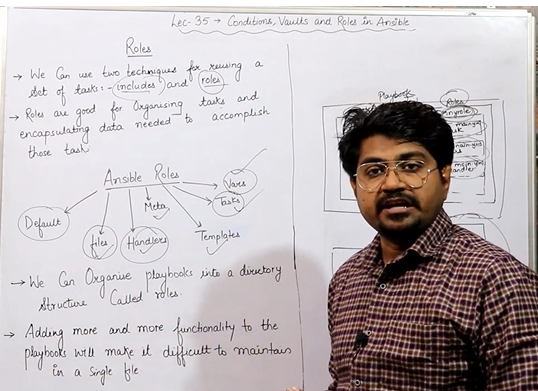 Lec-35 → Conditions, Vaults and Roles in Ansible
Roles
→ We Can use two techniques for reusing a
set of tasks:- includes and roles
→ Roles are good for Organising tasks and
encapsulating data needed to accomplish
those task
Ansible Roles
Default
files
Handlers
Meta
Templates
Tasks
Vars
→ We Can Organise playbooks into a directory
structure Called roles.
→ Adding more and more functionality to the
playbooks will make it difficult to maintain
in a single file
Playbook
Roles